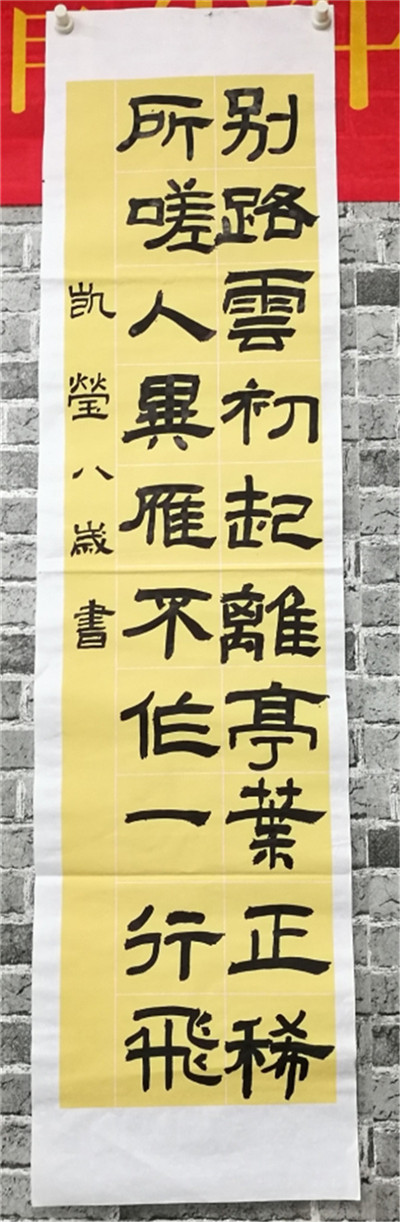 别路雲初起離亭葉正稀
所嗟人異雁不作一行飛
凯瑩八歲書